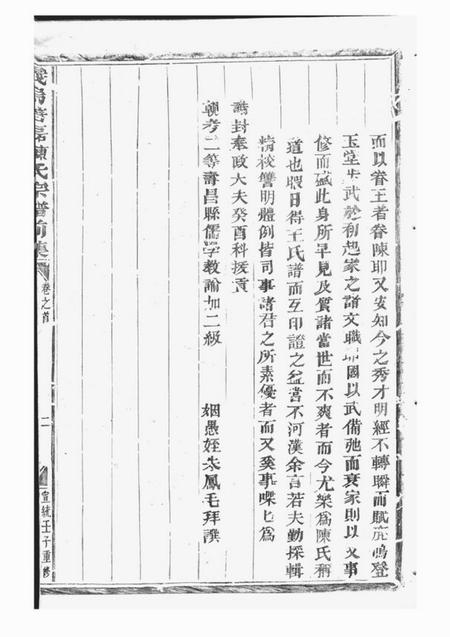 而以眷王者眷陳耶又安知今之秀才明經不轉瞬而賦鹿鳴登
玉堂步武於創起家之諸文職耶國以武備弛而衰家則以文事
修而盛此身所早見及質諸當世而不爽者而今尤樂為陳氏稱
道也暇日得王氏譜而互印證之益當不河漢余言若夫勤採輯
精校讐明體例皆司事諸君之所素優者而又奚事喋喋為
誥封奉政大夫癸酉科拔貢
朝考二等壽昌縣儒學教諭加二級
姻愚姪朱鳳毛拜譔
陳氏宗譜前集
卷之首
二
宣統壬子重修